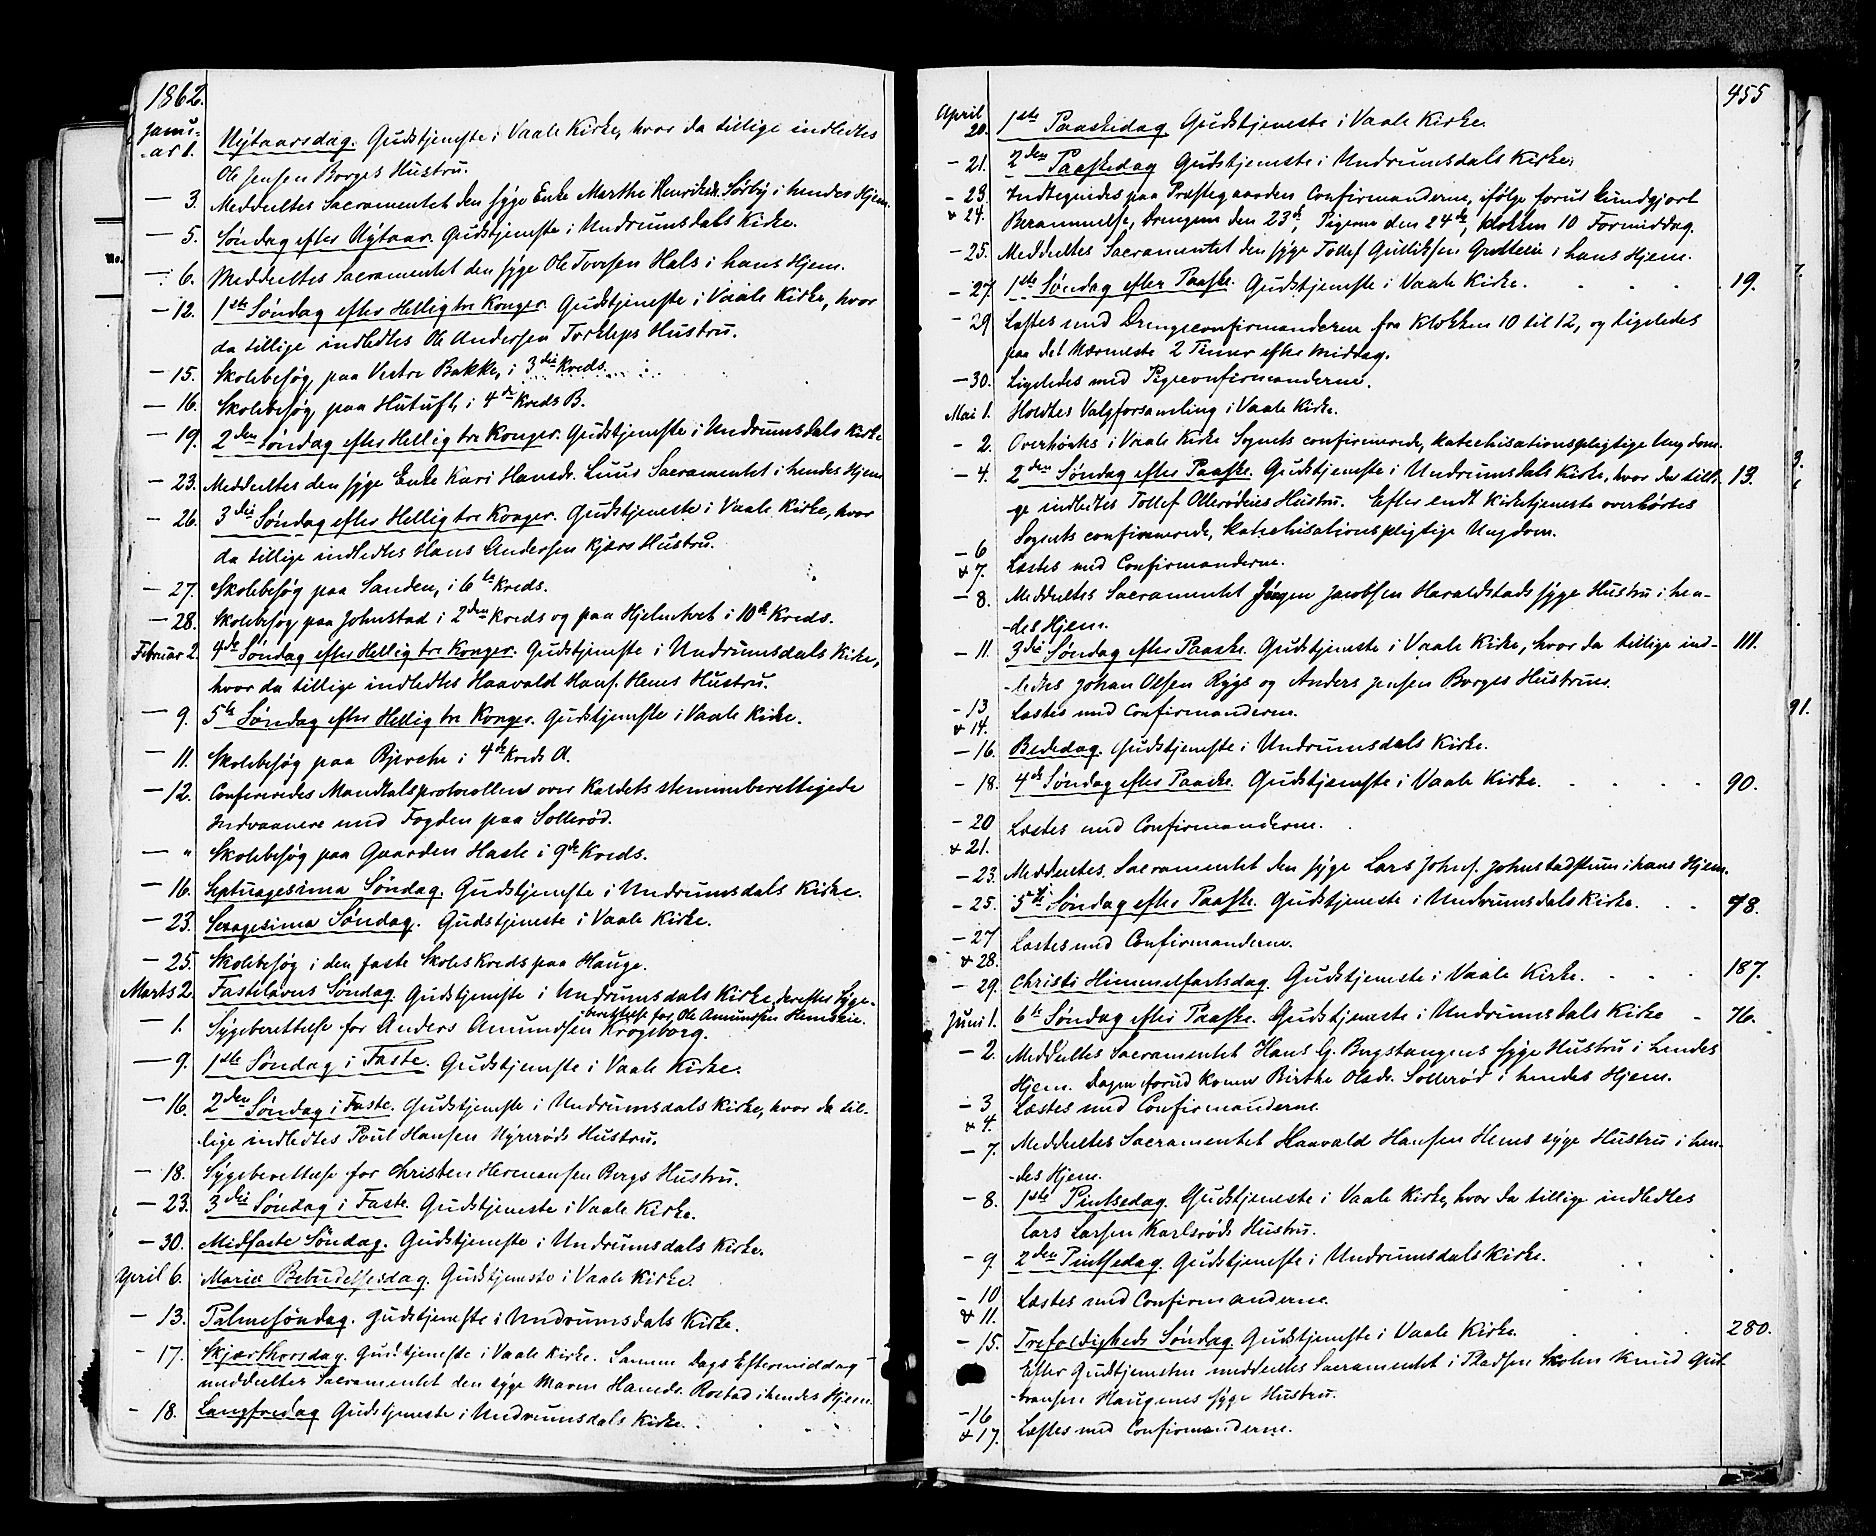 1862.
Janu-
-ar 1. Nytaarsdag. Gudstjeneste i Vaale Kirke, hvor da tillige indledtes
Ole Jensen Borges Hustru.
— 3. Meddeeltes Sacramentet den syge Enke Marthe Henriksd. Sørby i hendes Hjem.
— 5. Søndag efter Nytaar. Gudstjeneste i Undrumsdals Kirke.
— 6. Meddeeltes Sacramentet den syge Ole Hals i hans Hjem.
— 12. 1ste Søndag efter Hellig tre Konger. Gudstjeneste i Vaale Kirke, hvor
da tillige indledtes Ole Andersen Hustru.
— 15. Skolebesøg paa Vestre Bakke, i 3die Kreds.
— 16. Skolebesøg paa Hutuft, i 4de Kreds B.
— 19. 2den Søndag efter Hellig tre Konger. Gudstjeneste i Undrumsdals Kirke
— 23. Meddeeltes den syge Enke Kari Hansd. Luus Sacramentet i hendes Hjem
— 26. 3die Søndag efter Hellig tre Konger. Gudstjeneste i Vaale Kirke, hvor
da tillige indledtes Hans Andersen Kjærs Hustru.
— 27. Skolebesøg paa Sanden, i 6te Kreds.
— 28. Skolebesøg paa Johnstad i 2den Kreds og paa Hjelmtvet i 10de Kreds.
Februar 2. 4de Søndag efter Hellig tre Konger. Gudstjeneste i Undrumsdals Kirke,
hvor da tillige indledtes Haavald Hans. Hems Hustru.
— 9. 5te Søndag efter Hellig tre Konger. Gudstjeneste i Vaale Kirke.
— 11. Skolebesøg paa Bjerche i 4de Kreds A.
— 12. Confereredes Mandtalsprotocollen over Kaldets stemmeberettigede
Indvaanere med Fogden paa Sollerød.
— " Skolebesøg paa Gaarden Hasle i 9de Kreds.
— 16. Septuagesima Søndag. Gudstjeneste i Undrumsdals Kirke.
— 23. Sexagesima Søndag. Gudstjeneste i Vaale Kirke.
— 25. Skolebesøg i den faste Skoles Kreds paa Hauge.
Marts 2. Fastelavns Søndag. Gudstjeneste i Undrumsdals Kirke, derefter Syge-
berettelse for Ole Amundsen Hemseie.
— 1. Sygeberettelse for Anders Amundsen Krogsborg.
— 9. 1ste Søndag i Faste. Gudstjeneste i Vaale Kirke.
— 16. 2den Søndag i Faste. Gudstjeneste i Undrumsdals Kirke, hvor da til-
-lige indledtes Poul Hansen Nyrerøds Hustru.
— 18. Sygeberettelse for Christen Hermansen Bergs Hustru.
— 23. 3die Søndag i Faste. Gudstjeneste i Vaale Kirke.
— 30. Midfaste Søndag. Gudstjeneste i Undrumsdals Kirke.
April 6. Mariæ Bebudelsesdag. Gudstjeneste i Vaale Kirke.
— 13. Palmesøndag. Gudstjeneste i Undrumsdals Kirke.
— 17. Skjærthorsdag. Gudstjeneste i Vaale Kirke. Samme Dags Eftermiddag
meddeeltes Sacramentet den syge Maren Hansd. Rostad i hendes Hjem.
— 18. Langfredag Gudstjeneste i Undrumsdals Kirke.
455
April
20. 1ste Paaskedag Gudstjeneste i Vaale Kirke.
— 21. 2den Paaskedag Gudstjeneste i Undrumsdals Kirke.
— 23. Indtegnedes paa Præstegaarden Confirmanderne, ifølge forud kundgjort
& 24. Berammelse, Drengene den 23de, Pigerne den 24de, Klokken 10 Formiddag.
— 25. Meddeeltes Sacramentet den syge Tollef Gulliksen i hans Hjem.
— 27. 1ste Søndag efter Paaske. Gudstjeneste i Vaale Kirke. 19.
— 29 Læstes med Drengeconfirmanderne fra Klokken 10 til 12, og ligeledes
paa det Nærmeste 2 Timer efter Middag.
— 30. Ligeledes med Pigeconfirmanderne.
Mai 1. Holdtes Valgforsamling i Vaale Kirke.
— 2. Overhørtes i Vaale Kirke Sognets confirmerede, katechisationspligtige Ungdom.
— 4. 2den Søndag efter Paaske. Gudstjeneste i Undrumsdals Kirke, hvor da tilli- 13.
ge indledtes Tollef Ollerødeies Hustru. Efter endt Kirketjeneste overhørtes
Sognets confirmerede, katechisationspligtige Ungdom.
— 6
& 7. Læstes med Confirmanderne.
— 8. Meddeeltes Sacramentet Jørgen Jacobsen Haraldstads syge Hustru i hen-
-des Hjem.
— 11. 3die Søndag efter Paaske. Gudstjeneste i Vaale Kirke, hvor da tillige ind- 111.
-ledtes Johan Olsen Rygs og Anders Jensen Borges Hustruer.
— 13
& 14. Læstes med Confirmanderne.
— 16. Bededag. Gudstjeneste i Undrumsdals Kirke.
— 18. 4de Søndag efter Paaske. Gudstjeneste i Vaale Kirke. 90.
— 20
& 21. Læstes med Confirmanderne.
— 23. Meddeeltes Sacramentet den syge Lars Johns. i hans Hjem.
— 25. 5te Søndag efter Paaske. Gudstjeneste i Undrumsdals Kirke. 48.
— 27
& 28. Læstes med Confirmanderne.
— 29. Christi Himmelfartsdag. Gudstjeneste i Vaale Kirke. 187.
Juni 1. 6te Søndag efter Paaske. Gudstjeneste i Undrumsdals Kirke 76.
— 2. Meddeeltes Sacramentet Hans G. Bugstangens syge Hustru i hendes
Hjem. Dagen forud Konen Birthe Olsdr. Sollerød i hendes Hjem.
— 3
& 4. Læstes med Confirmanderne.
— 7. Meddeeltes Sacramentet Haavald Hansen Hems syge Hustru i hen-
-des Hjem.
— 8. 1ste Pintsedag. Gudstjeneste i Vaale Kirke, hvor da tillige indledtes
Lars Larsen Karlsrøds Hustru.
— 9. 2den Pintsedag. Gudstjeneste i Undrumsdals Kirke.
— 10
& 11. Læstes med Confirmanderne.
— 15. Trefoldigheds Søndag. Gudstjeneste i Vaale Kirke. 280.
Efter Gudstjenesten meddeeltes Sacramentet i Pladsen Skolen Knud Gut-
-tormsen Haugenes syge Hustru.
— 16
& 17. Læstes med Confirmanderne.